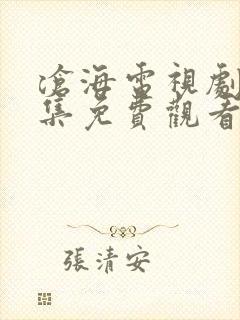 滄海雷視劇
集免費觀看
張清安